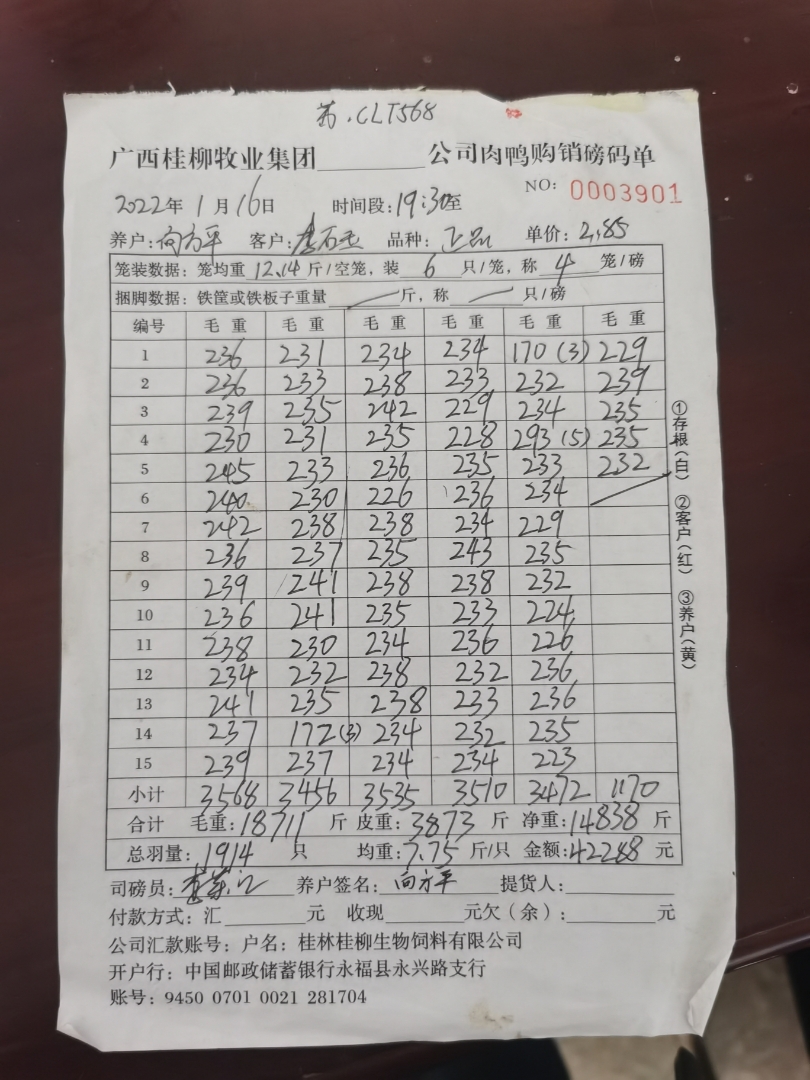 苏.CLT568
广西桂柳牧业集团________公司肉鸭购销磅码单
NO: 0003901
2022年 1月16日 时间段:19:30至
养户:向方平 客户: 品种:正品 单价:2.85
笼装数据:笼均重 12.14 斤/空笼,装 6 只/笼,称 4 笼/磅
捆脚数据:铁筐或铁板子重量 — 斤,称 — 只/磅
编号 毛重 毛重 毛重 毛重 毛重 毛重
1 236 231 234 234 170(3) 229
2 236 233 238 233 232 239
3 239 235 242 229 234 235
4 230 231 235 228 293(5) 235
5 245 233 236 235 233 232
6 240 230 226 236 234
7 242 238 238 234 229
8 236 237 235 243 235
9 239 241 238 238 232
10 236 241 235 233 224
11 238 230 234 236 226
12 234 232 238 232 236
13 241 235 238 233 236
14 237 172(3) 234 232 235
15 239 237 234 234 223
小计 3568 3456 3535 3510 3472 1170
合计 毛重:18711 斤 皮重:3873 斤 净重:14838 斤
总羽量:1914 只 均重:7.75 斤/只 金额:42288 元
司磅员: 养户签名:向方平 提货人:
付款方式:汇________元 收现________元欠(余):________元
公司汇款账号:户名:桂林桂柳生物饲料有限公司
开户行:中国邮政储蓄银行永福县永兴路支行
账号:9450 0701 0021 281704
①存根(白) ②客户(红) ③养户(黄)